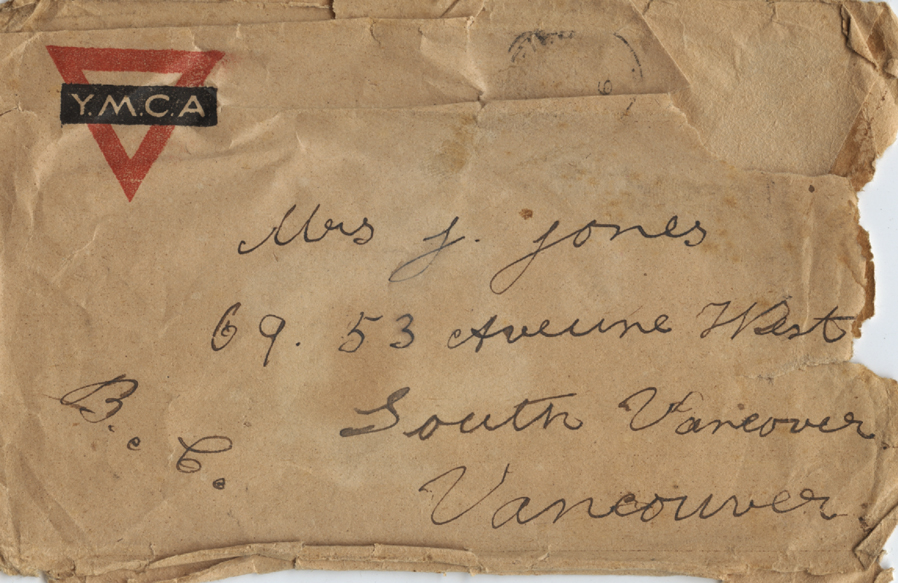 Y.M.C.A
Mrs J. Jones
69. 53 Aveune West
South Vancover.
B. C.
Vancouver.